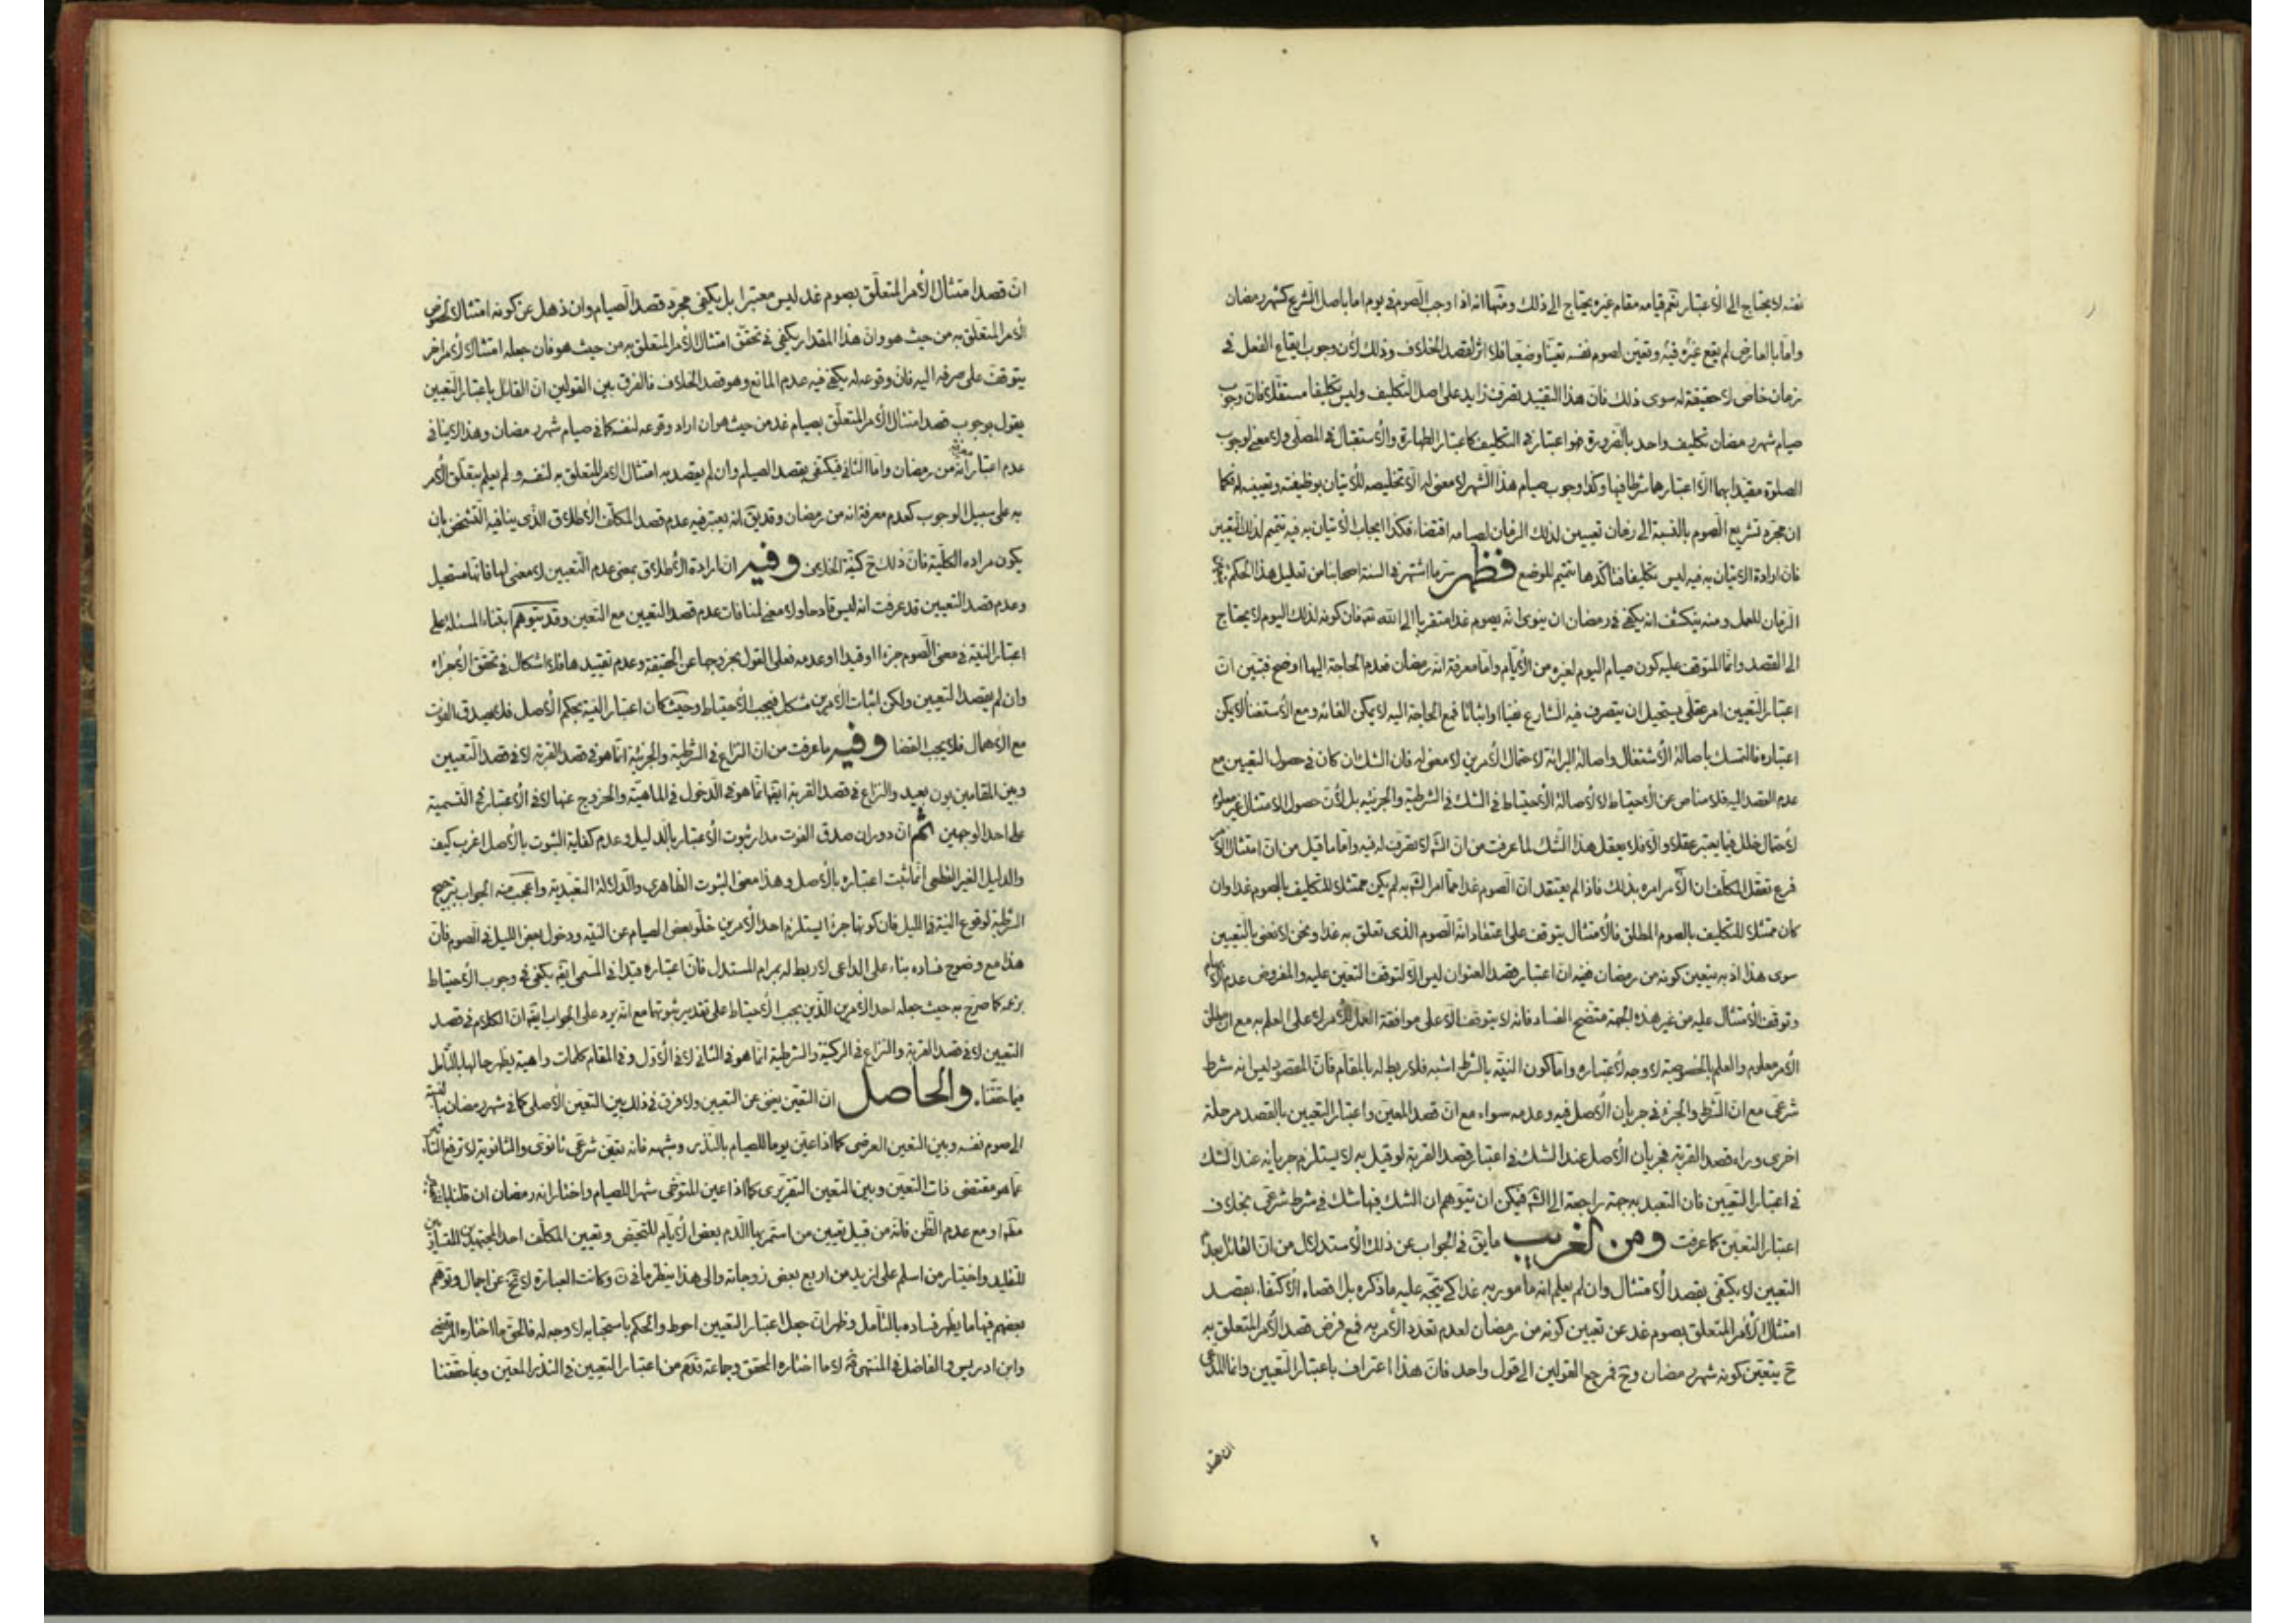 نفسه لا يحتاج الى الأعتبار نعم قيامه مقام غيره يحتاج الى ذلك ومنها انه اذا وجب الصوم فى يوم اما باصل الشرع كشهر رمضان
وامّا بالعارض لم يقع غيره فيه وتعين لصوم نفسه تعينا وضعيا فلا اثر لقصد الخلاف وذلك لأن وجوب ايقاع الفعل فى
زمان خاص لا حقيقة له سوى ذلك فان هذا التقييد تصرف زايد على اصل التكليف وليس تكليفا مستقلا فان وجوب
صيام شهر رمضان تكليف واحد بالضرورة فهو اعتبار فى التكليف كاعتبار الطهارة والأستقبال فى المصلى ولا معنى لوجوب
الصلوة مقيدا بهما الا اعتبارها شرطا فيها وكذا وجوب صيام هذا الشهر لا معنى له الا تخليصه للأتيان بوظيفته وتعيينه له فكما
ان مجرد تشريع الصوم بالنسبة الى زمان تعيين لذلك الزمان لصيامه اقتضاء فكذا ايجاب الأتيان به فيه تتميم لذلك التعيين
فان ارادة الاتيان به فيه ليس تكليفا متاكدها تتميم للوضع فظهر سرّ ما اشتهر فى السنة اصحابنا من تعليل هذا الحكم
الزمان للعمل ومنه ينكشف انه يكفى فى رمضان ان ينوى انه يصوم غدا متقربا الى الله تعم فان كونه لذلك اليوم لا يحتاج
الى القصد وانّما المتوقف عليه كون صيام اليوم لغيره من الأيام وامّا معرفة انه رمضان فعدم الحاجة اليها اوضح فتبين ان
اعتبار التعيين امر عقلى يستحيل ان يتصرف فيه الشارع نفيا او اثباتا فمع الحاجة اليه لا يمكن الغائه ومع الأستغناء لا يمكن
اعتباره فالتمسك بأصالة الأشتغال واصالة البرائة لاحتمال الأمرين لا معنى له فان الشك ان كان فى حصول التعيين مع
عدم القصد اليه فلا مناص عن الأحتياط لا لأصالة الأحتياط فى الشك فى الشرطية والجزئية بل لأن حصول الامتثال غير معلوم
لأحتمال خلل فيما يعتبر عقلا والا فلا يعقل هذا الشك لما عرفت من ان الشم لا تصرف له فيه وامّا ما قيل من ان امتثال الأمر
فرع تعقل المكلف ان الآمر امره بذلك فاذا لم يعتقد ان الصوم غدا ممّا امر الشم به لم يكن ممتثلا للتكليف بالصوم غدا وان
كان ممتثلا للتكليف بالصوم المطلق فالامتثال يتوقف على اعتقاد انه الصوم الذى تعلق به غدا ونحن لا نعنى بالتعيين
سوى هذا اذ به يتعين كونه من رمضان ففيه ان اعتبار قصد العنوان ليس الا لتوقف التعين عليه والمفروض عدم الأبهام
وتوقف الأمتثال عليه من غير هذه الجهة متضح الفساد فانه لا يتوقف الا على موافقة العمل للأمر لا على العلم به مع ان مطلق
الأمر معلوم والعلم بالخصوصية لا وجه لأعتباره وامّا كون النيّة بالشرط اشبه فلا ربط له بالمقام فان المقصود ليس انه شرط
شرعى مع ان الشرط والجزء فى جريان الأصل فيه وعدمه سواء مع ان قصد المعين واعتبار التعيين بالقصد مرحلة
اخرى وراء قصد القربة فجريان الأصل عند الشك فى اعتبار قصد القربة لو قيل به لا يستلزم جريانه عند الشك
فى اعتبار التعيين فان التعبد به جهة راجعة الى الشم فيمكن ان يتوهم ان الشك فيها شك فى شرط شرعى بخلاف
اعتبار التعين كما عرفت ومن الغريب ما يق فى الجواب عن ذلك الأستدلال من ان القائل بعدم
التعيين لا يكتفى بقصد الأمتثال وان لم يعلم انه مأمور به غدا كى يتجه عليه ما ذكره بل اقصاه الأكتفاء بقصد
امتثال الأمر المتعلق بصوم غد عن تعيين كونه من رمضان لعدم تعدد الأمر به فمع فرض قصد الأمر المتعلق به
ح يتعين كونه شهر رمضان وح فمرجع القولين الى قول واحد فان هذا اعتراف باعتبار التعيين وانما المدعى
ان قصد
ان قصد امتثال الأمر المتعلق بصوم غد ليس معتبرا بل يكفى مجرد قصد الصيام وان ذهل عن كونه امتثالا لخصوص
الأمر المتعلق به من حيث هو وان هذا المقدار يكفى فى تحقق امتثال الأمر المتعلق به من حيث هو فان جعله امتثالا لأمر اخر
يتوقف على صرفه اليه فان وقوعه له يكفى فيه عدم المانع وهو قصد الخلاف فالفرق بين القولين ان القائل باعتبار التعيين
يقول بوجوب قصد امتثال الأمر المتعلق بصيام غد من حيث هو ان اراد وقوعه لنفسه كما فى صيام شهر رمضان وهذا لا ينافى
عدم اعتبار معرفة انه من رمضان وامّا الثانى فيكتفى بقصد الصيام وان لم يقصد به امتثال الامر المتعلق به لنفسه ولم يعلم بتعلق الأمر
به على سبيل الوجوب كعدم معرفة انه من رمضان وقد يق انه يعتبر فيه عدم قصد المكلف الأطلاق الذى ينافيه التشخص بان
يكون مراده الكلية فان ذلك ح كنيّة الخلاف وفيه ان ارادة الأطلاق بمعنى عدم التعيين لا معنى لها فانها مستحيل
وعدم قصد التعيين قد عرفت انه ليس قادحا ولا معنى لمنافات عدم قصد التعيين مع التعين وقد يتوهم ابتناء المسئلة على
اعتبار النية فى معنى الصوم جزءا او قيدا او عدمه فعلى القول بخروجها عن الحقيقة وعدم تقييدها فلا اشكال فى تحقق الأجزاء
وان لم يقصد التعيين ولكن اثبات الأمرين مشكل فيجب الأحتياط وحيث كان اعتبار النية بحكم الأصل فلا يصدق الفوت
مع الاهمال فلا يجب القضا وفيه ما عرفت من ان النزاع فى الشرطية والجزئية انّما هو فى قصد القربة لا فى قصد التعيين
وبين المقامين بون بعيد والنزاع فى قصد القربة ايضا انّما هو فى الدخول فى الماهية والخروج عنها لا فى الأعتبار فى التسمية
على احد الوجهين ثم ان دوران صدق الفوت مدار ثبوت الأعتبار بالدليل وعدم كفاية الثبوت بالأصل اغرب كيف
والدليل الغير القطعى انّما يثبت اعتباره بالأصل وهذا معنى الثبوت الظاهرى والدلالة التعبدية واعجب منه الجواب بترجيح
الشرطية لوقوع النية فى الليل فان كونها جزءا يستلزم احد الأمرين خلو بعض الصيام عن النيّة ودخول بعض الليل فى الصوم فان
هذا مع وضوح فساده بناء على الداعى لا ربط له بمرام المستدل فان اعتباره قيدا فى المسمى ايضا يكفى فى وجوب الأحتياط
بزعمه كما صرّح به حيث جعله احد الأمرين الذين يجب الأحتياط على تقدير ثبوتهما مع انه يرد على الجواب ايضا ان الكلام فى قصد
التعيين لا فى قصد القربة والنزاع فى الركنية والشرطية انّما هو فى الثانى لا فى الأول وفى المقام كلمات واهية يظهر حالها بالتأمل
فيما حققنا. والحاصل ان التعيّن يغنى عن التعيين ولا فرق فى ذلك بين التعين الأصلى كما فى شهر رمضان بالنسبة
الى صوم نفسه وبين التعين العرضى كما اذا عين يوما للصيام بالنذر وشبهه فانه تعين شرعى ثانوى والثانوية لا ترفع التأثير
عمّا هو مقتضى ذات التعين وبين التعين التقريرى كما اذا عين المتوخى شهرا للصيام واختار انه رمضان ان قلنا
مظ او مع عدم الظن فانه من قبيل تعيين من استمر بها الدم بعض الأيام للتحيض وتعيين المكلف احد المجتهدين المتساويين
للتقليد واختيار من اسلم على ازيد من اربع بعض زوجاته والى هذا ينظر ما فى ن وكانت العبارة لا تخ عن اجمال وتوهم
بعضهم فيها ما يظهر فساده بالتأمل وظهر ان جعل اعتبار التعيين احوط والحكم باستحبابه لا وجه له فالحق ما اختاره المرتضى
وابن ادريس والفاضل فى المنتهى لا ما اختاره المحقق وجماعة من اعتبار التعيين فى النذر المعين وبما حققنا